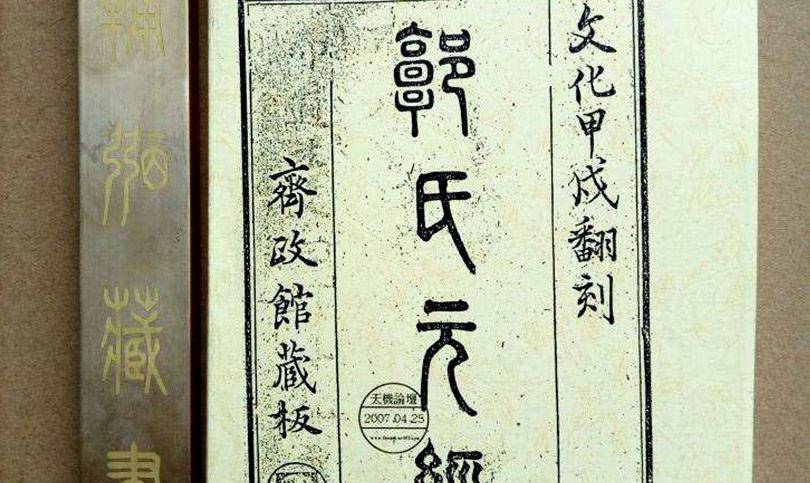 文化甲戌翻刻
郭氏元經
齊政館藏板
天機論壇
2007.04.25
藏書